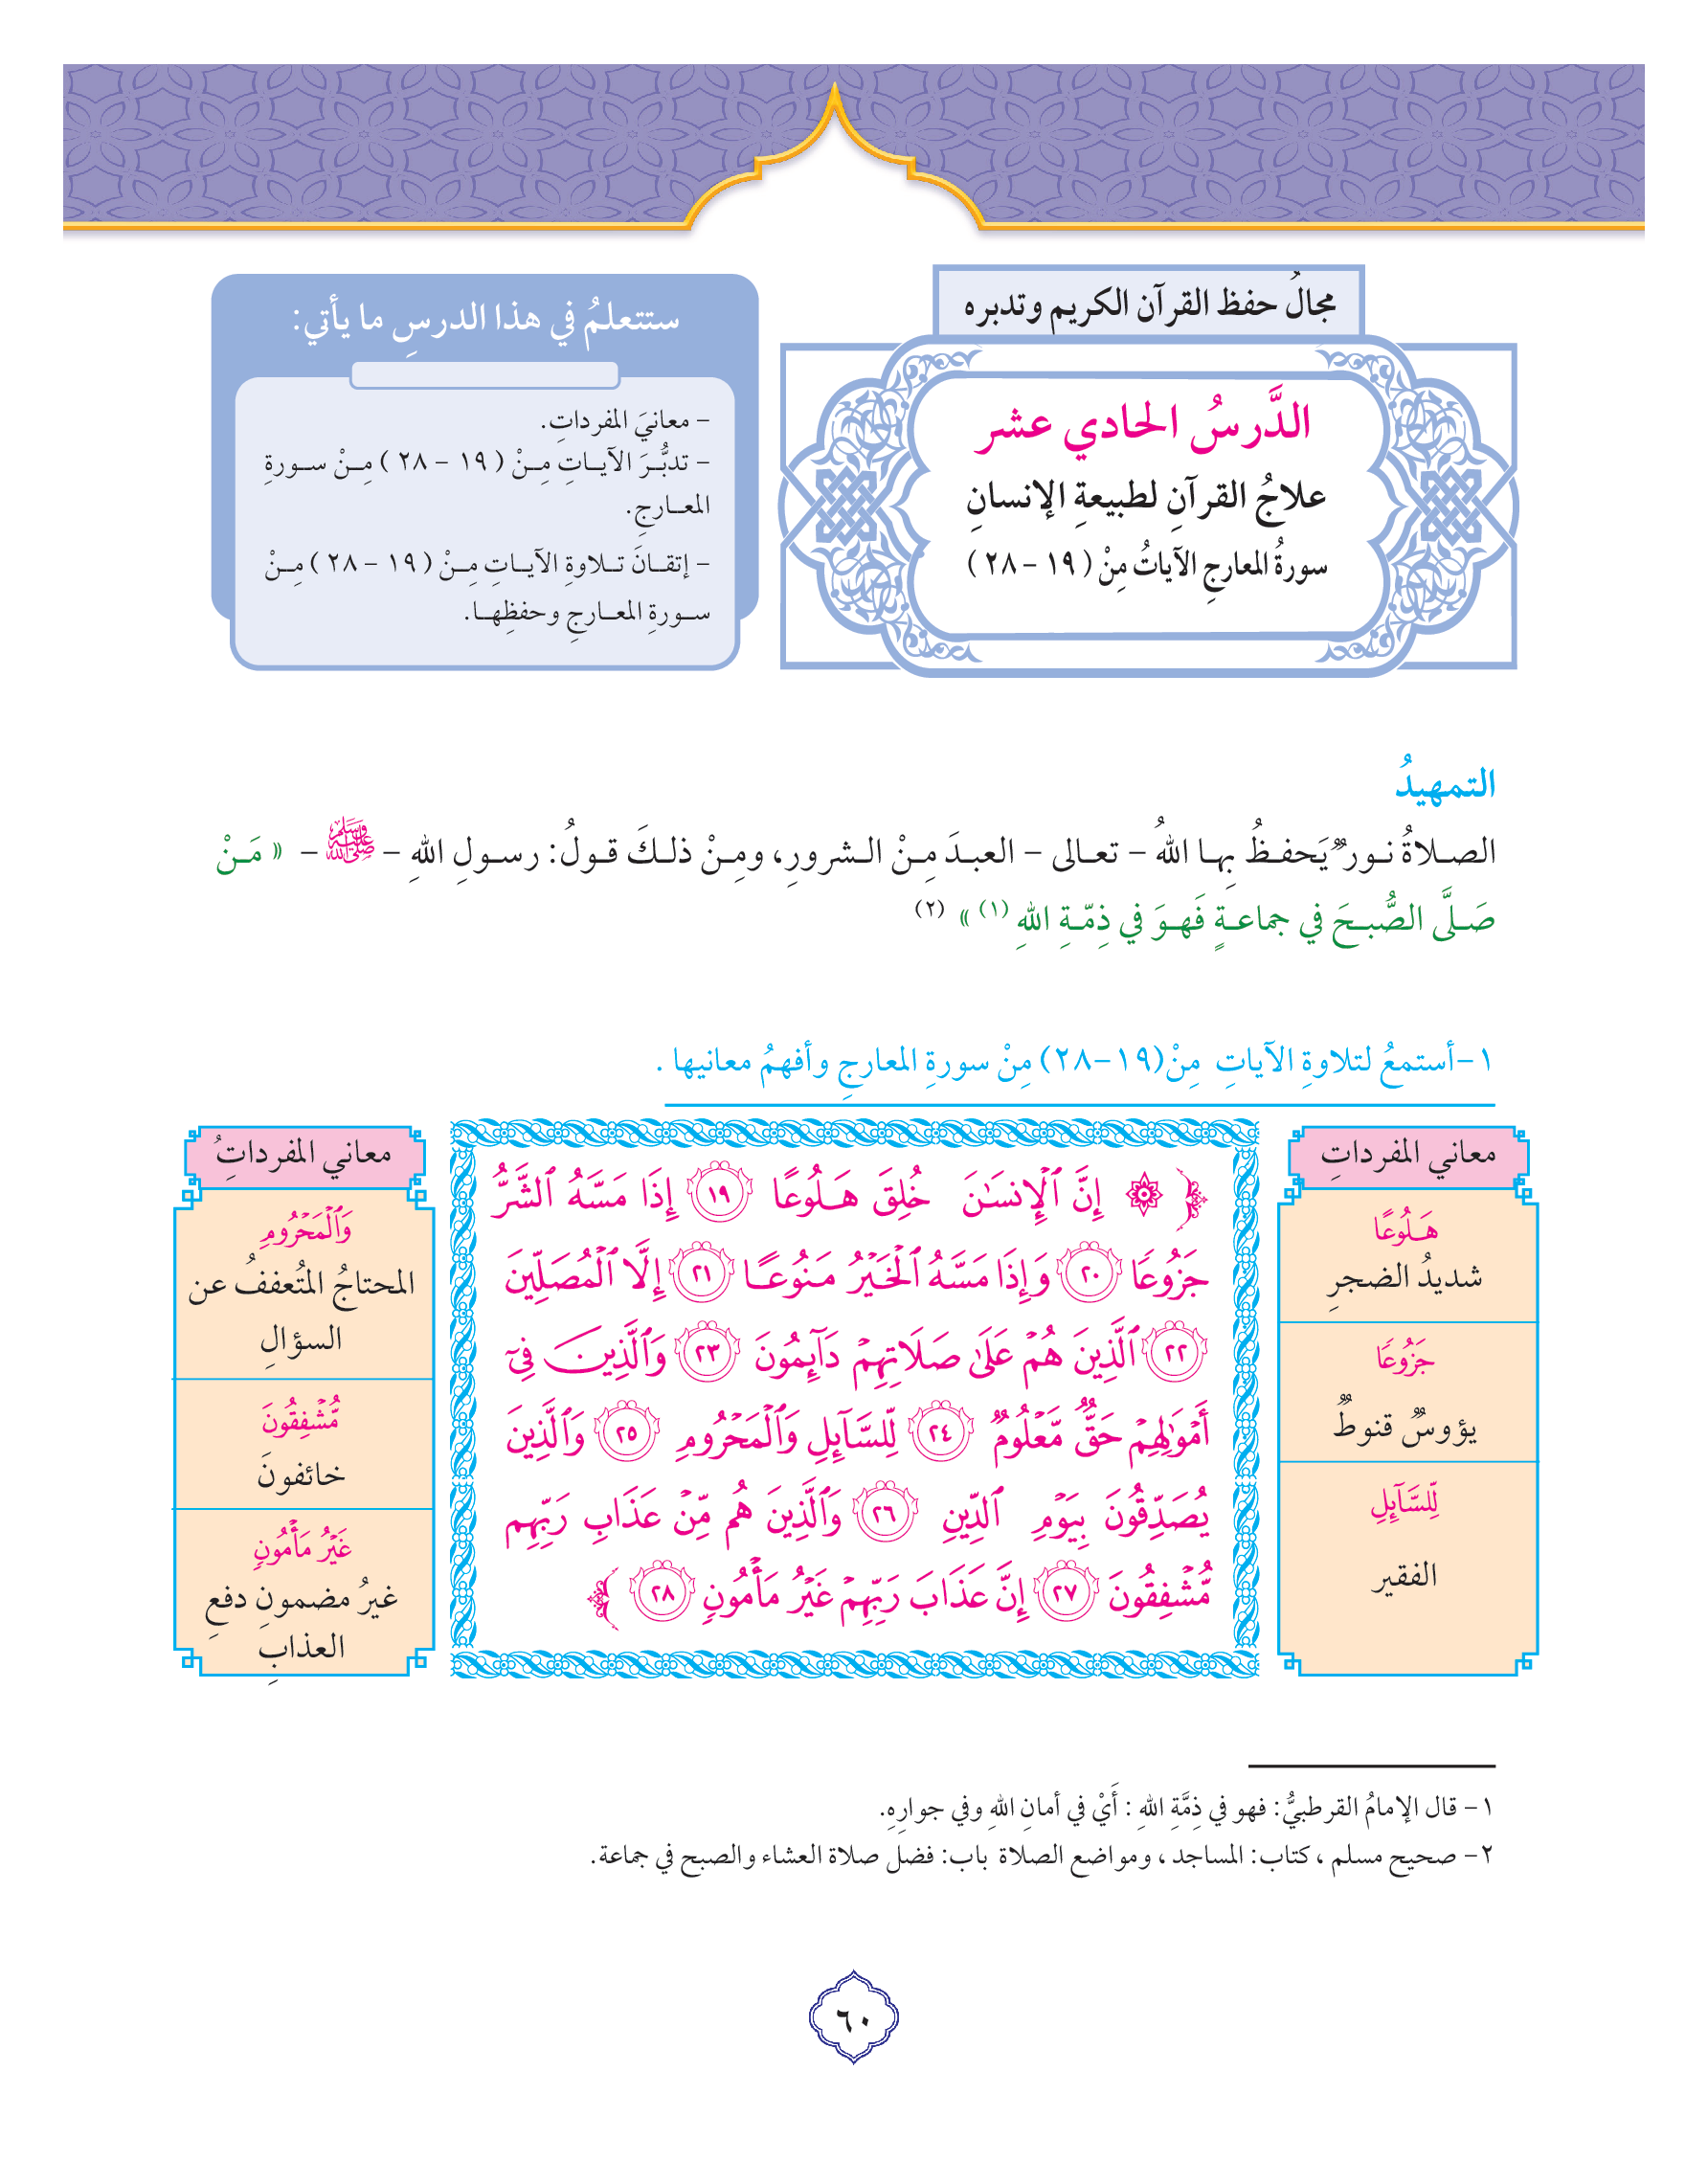 مجالُ حفظ القرآن الكريم وتدبره
الدَّرسُ الحادي عشر
علاجُ القرآنِ لطبيعةِ الإنسانِ
سورةُ المعارجِ الآياتُ مِنْ ( ١٩ - ٢٨ )
ستتعلمُ في هذا الدرسِ ما يأتي:
- معانيَ المفرداتِ.
- تدبُّرَ الآياتِ مِنْ ( ١٩ - ٢٨ ) مِنْ سورةِ
المعارجِ.
- إتقانَ تلاوةِ الآياتِ مِنْ ( ١٩ - ٢٨ ) مِنْ
سورةِ المعارجِ وحفظِهَا.
التمهيدُ
الصلاةُ نورٌ يَحفظُ بِها اللهُ - تعالى - العبدَ مِنْ الشرورِ، ومِنْ ذلكَ قولُ: رسولِ اللهِ - ﷺ - « مَنْ
صَلَّى الصُّبحَ في جماعةٍ فَهوَ في ذِمّةِ اللهِ (١) » (٢)
١-أستمعُ لتلاوةِ الآياتِ مِنْ(١٩-٢٨) مِنْ سورةِ المعارجِ وأفهمُ معانيها .
معاني المفرداتِ
هَلُوعًا
شديدُ الضجرِ
جَزُوعَا
يؤوسٌ قنوطٌ
لِّلسَّآئِلِ
الفقير
﴿ ۞ إِنَّ ٱلْإِنسَٰنَ خُلِقَ هَلُوعًا ١٩ إِذَا مَسَّهُ ٱلشَّرُّ
جَزُوعَا ٢٠ وَإِذَا مَسَّهُ ٱلْخَيْرُ مَنُوعًا ٢١ إِلَّا ٱلْمُصَلِّينَ
٢٢ ٱلَّذِينَ هُمْ عَلَىٰ صَلَاتِهِمْ دَآئِمُونَ ٢٣ وَٱلَّذِينَ فِىٓ
أَمْوَٰلِهِمْ حَقٌّ مَّعْلُومٌ ٢٤ لِّلسَّآئِلِ وَٱلْمَحْرُومِ ٢٥ وَٱلَّذِينَ
يُصَدِّقُونَ بِيَوْمِ ٱلدِّينِ ٢٦ وَٱلَّذِينَ هُم مِّنْ عَذَابِ رَبِّهِم
مُّشْفِقُونَ ٢٧ إِنَّ عَذَابَ رَبِّهِمْ غَيْرُ مَأْمُونٍ ٢٨ ﴾
معاني المفرداتِ
وَٱلْمَحْرُومِ
المحتاجُ المتُعففُ عن
السؤالِ
مُّشْفِقُونَ
خائفونَ
غَيْرُ مَأْمُونٍ
غيرُ مضمونِ دفعِ
العذابِ
١- قال الإمامُ القرطبيُّ: فهو في ذِمَّةِ اللهِ : أَيْ في أمانِ اللهِ وفي جوارِهِ.
٢- صحيح مسلم ، كتاب: المساجد ، ومواضع الصلاة باب: فضل صلاة العشاء والصبح في جماعة.
٦٠